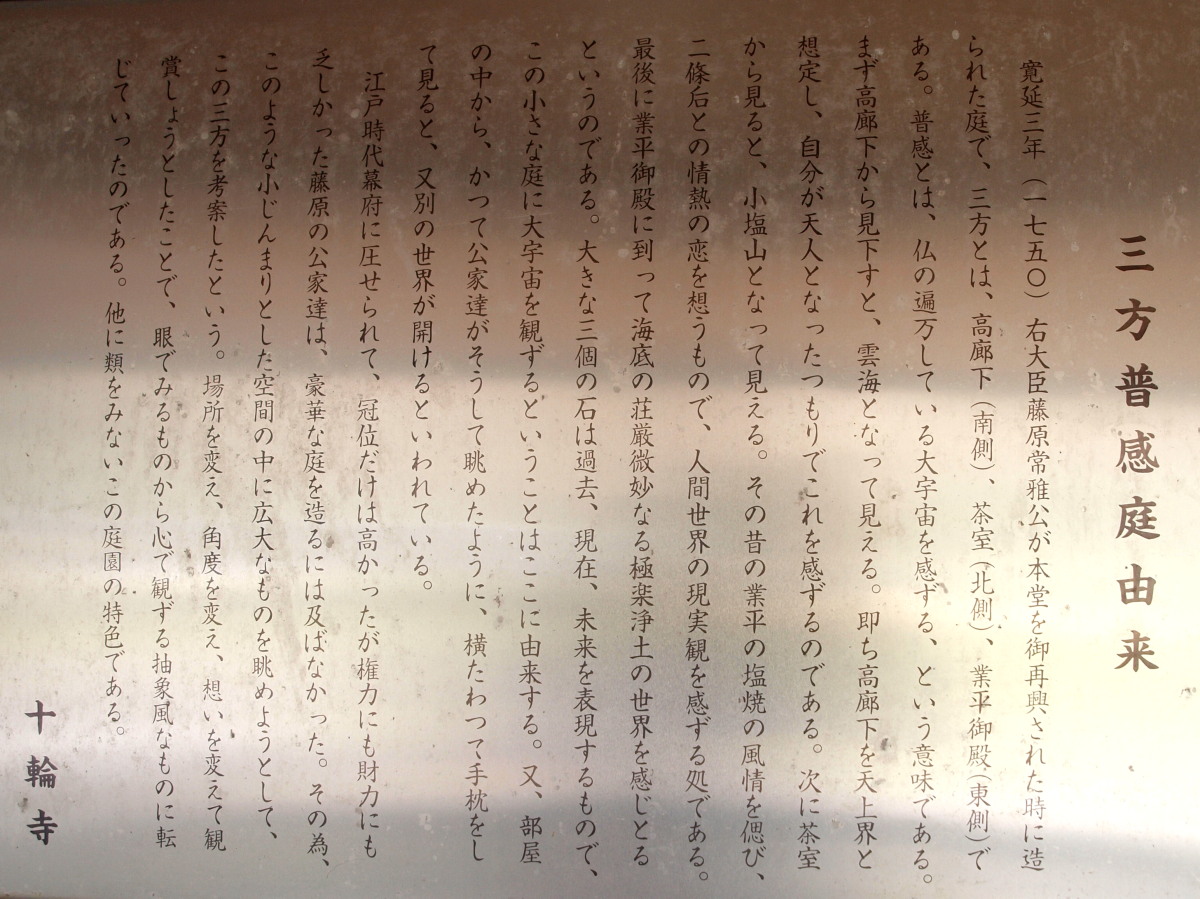 三方普感庭由来
寛延三年（一七五〇）右大臣藤原常雅公が本堂を御再興された時に造
られた庭で、三方とは、高廊下（南側）、茶室（北側）、業平御殿（東側）で
ある。普感とは、仏の遍万している大宇宙を感ずる、という意味である。
まず高廊下から見下すと、雲海となって見える。即ち高廊下を天上界と
想定し、自分が天人となったつもりでこれを感ずるのである。次に茶室
から見ると、小塩山となって見える。その昔の業平の塩焼の風情を偲び、
二條后との情熱の恋を想うもので、人間世界の現実観を感ずる処である。
最後に業平御殿に到って海底の荘厳微妙なる極楽浄土の世界を感じとる
というのである。大きな三個の石は過去、現在、未来を表現するもので、
この小さな庭に大宇宙を観ずるということはここに由来する。又、部屋
の中から、かつて公家達がそうして眺めたように、横たわつて手枕をし
て見ると、又別の世界が開けるといわれている。
江戸時代幕府に圧せられて、冠位だけは高かったが権力にも財力にも
乏しかった藤原の公家達は、豪華な庭を造るには及ばなかった。その為、
このような小じんまりとした空間の中に広大なものを眺めようとして、
この三方を考案したという。場所を変え、角度を変え、想いを変えて観
賞しょうとしたことで、眼でみるものから心で観ずる抽象風なものに転
じていったのである。他に類をみないこの庭園の特色である。
十輪寺